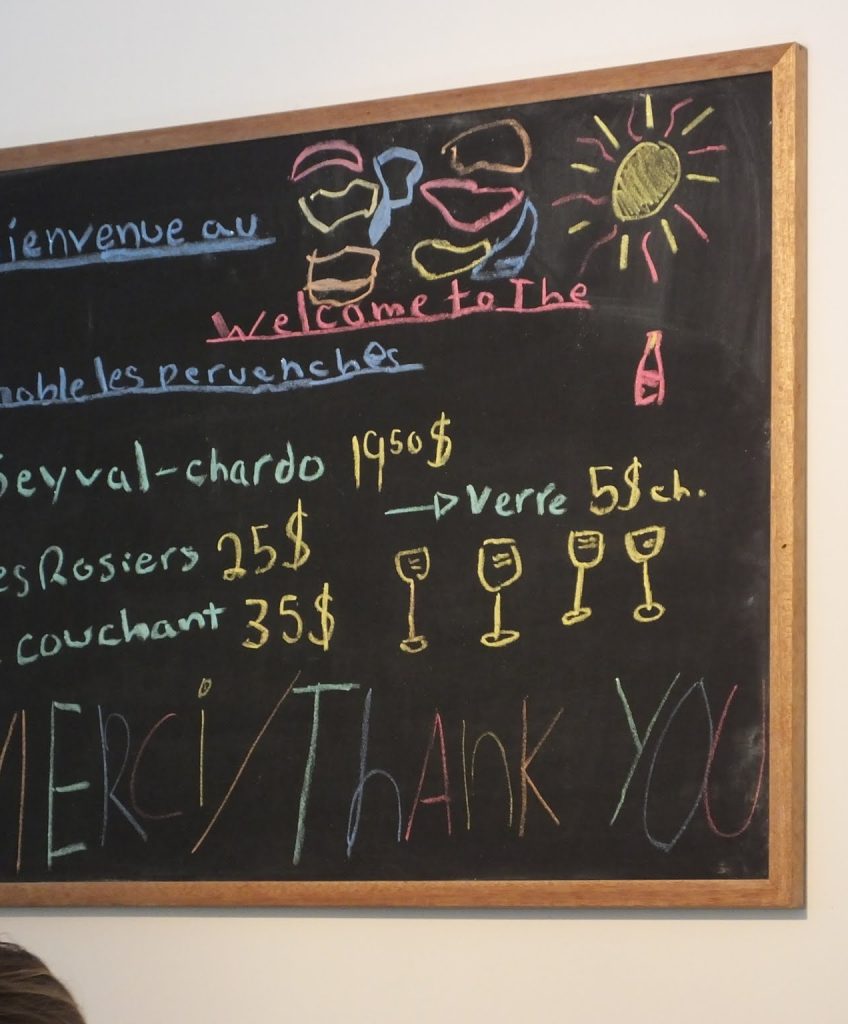 ienvenue au
Welcome to The
noble les pervenches
Seyval-chardo 19 50 $
→ Verre 5$ ch.
es Rosiers 25$
couchant 35$
MERCi/ThANK YOU